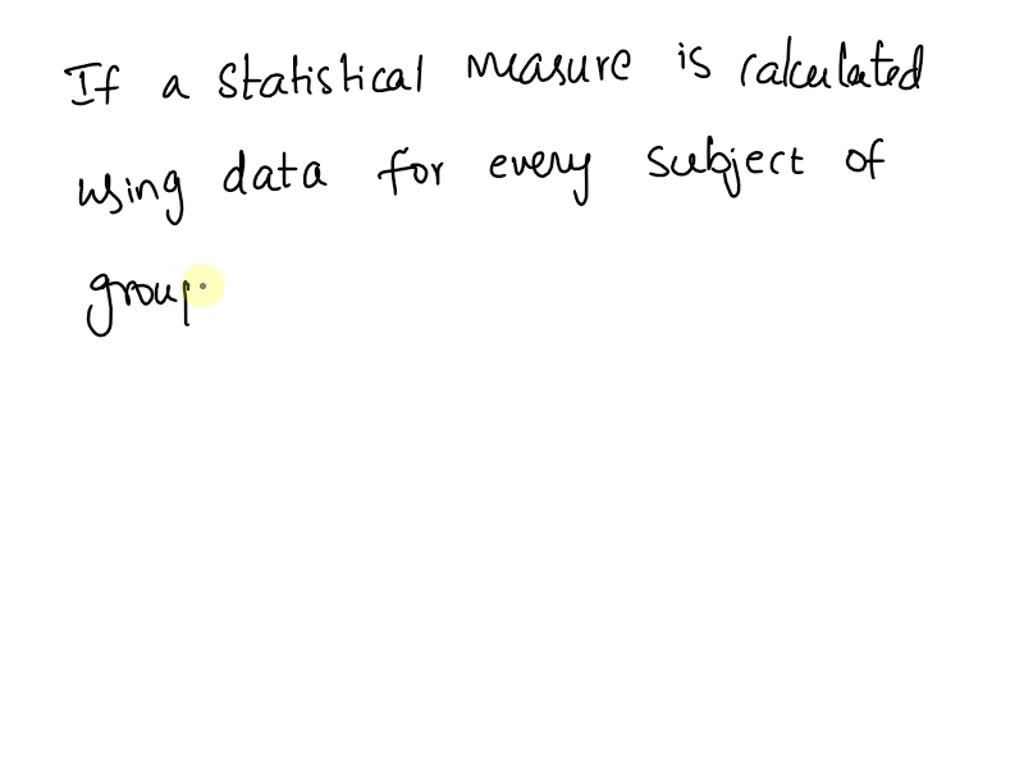 If a statistical measure is calculated
using data for every subject of
group